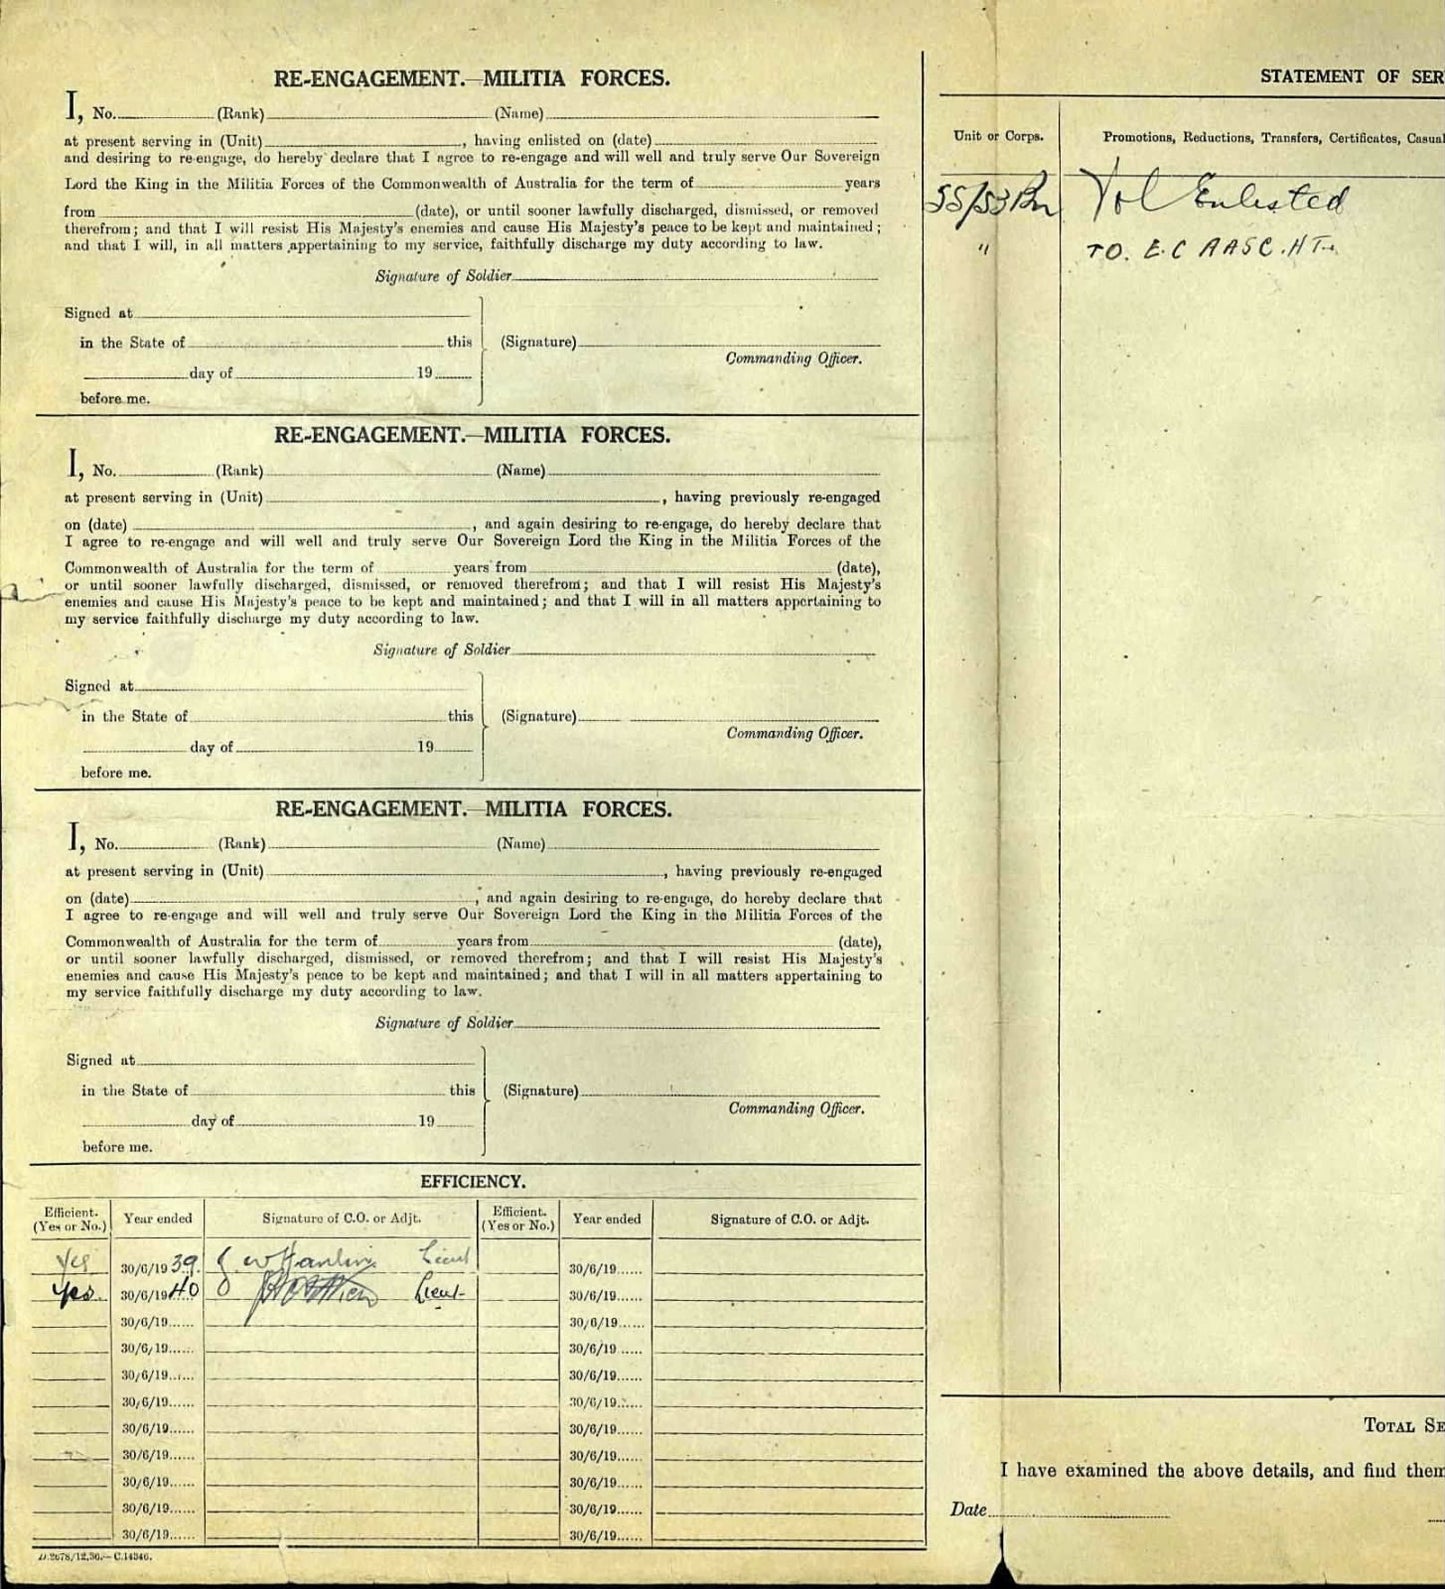 RE-ENGAGEMENT.—MILITIA FORCES.
I, No. (Rank) (Name)
at present serving in (Unit) , having enlisted on (date)
and desiring to re-engage, do hereby declare that I agree to re-engage and will well and truly serve Our Sovereign
Lord the King in the Militia Forces of the Commonwealth of Australia for the term of years
from (date), or until sooner lawfully discharged, dismissed, or removed
therefrom; and that I will resist His Majesty's enemies and cause His Majesty's peace to be kept and maintained;
and that I will, in all matters appertaining to my service, faithfully discharge my duty according to law.
Signature of Soldier
Signed at
in the State of this
(Signature)
Commanding Officer.
day of 19
before me.
RE-ENGAGEMENT.—MILITIA FORCES.
I, No. (Rank) (Name)
at present serving in (Unit) , having previously re-engaged
on (date) , and again desiring to re-engage, do hereby declare that
I agree to re-engage and will well and truly serve Our Sovereign Lord the King in the Militia Forces of the
Commonwealth of Australia for the term of years from (date),
or until sooner lawfully discharged, dismissed, or removed therefrom; and that I will resist His Majesty's
enemies and cause His Majesty's peace to be kept and maintained; and that I will in all matters appertaining to
my service faithfully discharge my duty according to law.
Signature of Soldier
Signed at
in the State of this
(Signature)
Commanding Officer.
day of 19
before me.
RE-ENGAGEMENT.—MILITIA FORCES.
I, No. (Rank) (Name)
at present serving in (Unit) , having previously re-engaged
on (date) , and again desiring to re-engage, do hereby declare that
I agree to re-engage and will well and truly serve Our Sovereign Lord the King in the Militia Forces of the
Commonwealth of Australia for the term of years from (date),
or until sooner lawfully discharged, dismissed, or removed therefrom; and that I will resist His Majesty's
enemies and cause His Majesty's peace to be kept and maintained; and that I will in all matters appertaining to
my service faithfully discharge my duty according to law.
Signature of Soldier
Signed at
in the State of this
(Signature)
Commanding Officer.
day of 19
before me.
EFFICIENCY.
Efficient. (Yes or No.) Year ended Signature of C.O. or Adjt. Efficient. (Yes or No.) Year ended Signature of C.O. or Adjt.
Yes 30/6/1939. Lieut 30/6/19......
Yes. 30/6/1940 Lieut- 30/6/19......
30/6/19...... 30/6/19......
30/6/19...... 30/6/19......
30/6/19...... 30/6/19......
30/6/19...... 30/6/19......
30/6/19...... 30/6/19......
30/6/19...... 30/6/19......
30/6/19...... 30/6/19......
30/6/19...... 30/6/19......
30/6/19...... 30/6/19......
D.2678/12.36.—C.14346.
STATEMENT OF SER
Unit or Corps. Promotions, Reductions, Transfers, Certificates, Casual
55/53 Bn Vol Enlisted
" TO. E.C AASC. HT.
TOTAL SE
I have examined the above details, and find them
Date